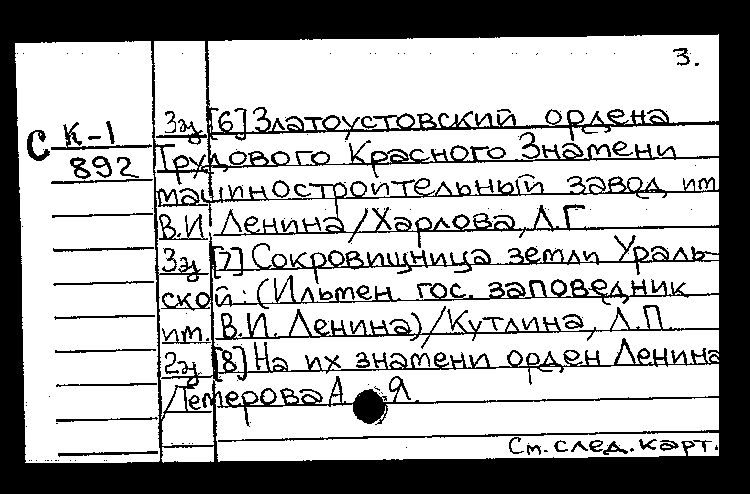 3.
3э [6] Златоустовский ордена
С К-1
892
Трудового Красного Знамени
машиностроительный завод им
В.И. Ленина/Харлова, Л.Г
3э [7] Сокровищница земли Ураль-
ской: (Ильмен. гос. заповедник
им. В.И. Ленина)/Кутлина, Л.П.
2э [8] На их знамени орден Ленина
/Петерова А. Я.
См. след. карт.